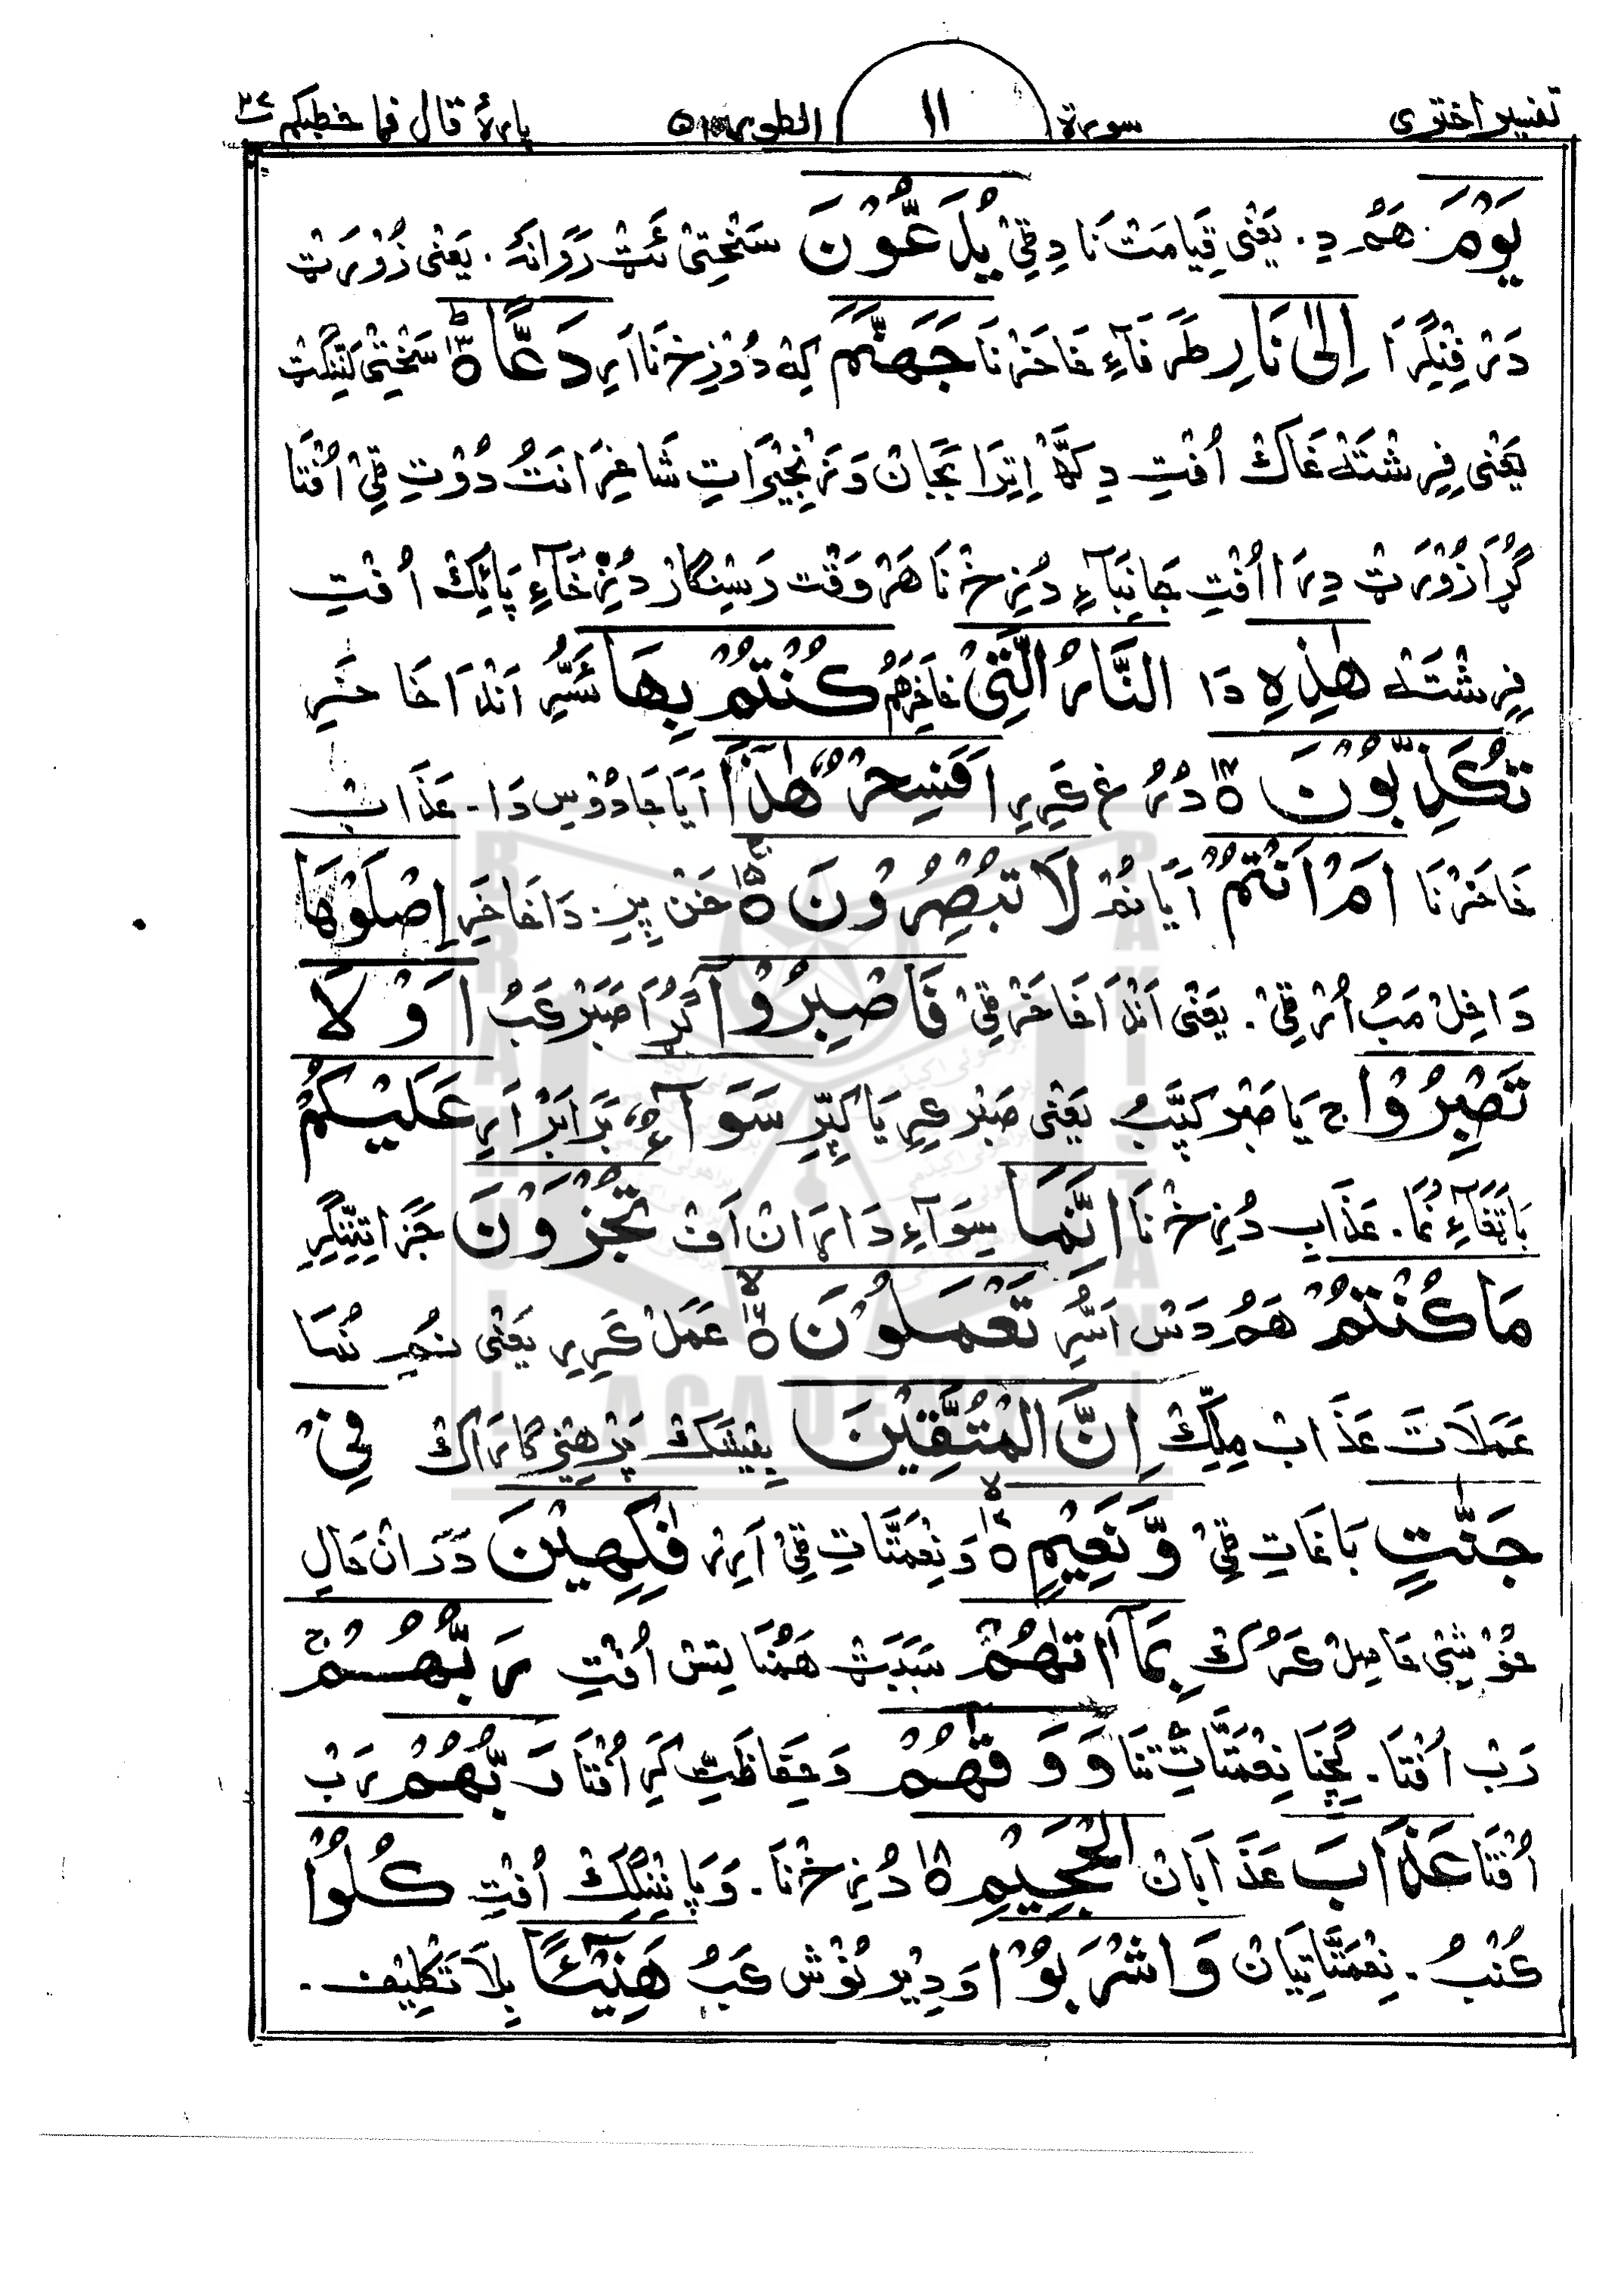 تفسیر اختری سورة ۱۱ الطور ۵۲ پارۂ قال فما خطبکم ۲۷
یَوْمَ هَمْ دِ. یَعْنِی قِیَامَتْ نَا دِ ٹِیْ یُدَعُّوْنَ سَخْتِیْ ئَٹْ رَوَانَہ. یَعْنِی زُوْرَٹْ
دَرْفِنْگِرَ اِلٰی نَارِ طَرَفَآءِ خَاخَرْنَا جَهَنَّمَ کِہْ دُوْزِخْ نَا اَرِ دَعًّا ۱۳ سَخْتِیْ
یَعْنِی فِرِشْتَہْ غَاکْ اُفْتِ دِکَّهْ اِتِرَا وَ زَنْجِیْرَاتِ شَاغِرَ اَنْتُ دُوْتِ ٹِیْ اُفْتَا
گُڑَا زُوْرَٹْ دِرَا اُفْتِ جَانِبَآءِ دُزِخْ نَا هَرْ وَقْت رَسِنْگَار دُزِخْ خَآءِ پَائِکْ اُفْتِ
فِرِشْتَہْ هٰذِهِ دَا النَّارُ الَّتِیْ خَاخَرْ هَمْ كُنْتُمْ بِهَا اَنْدَا خَاخَرِ
تُكَذِّبُوْنَ ۱۴ دُرُغ کَرِیرِ اَفَسِحْرٌ هٰذَا اَیَا جَادُوْسِ دَا. عَذَابْ
خَاخَرْنَا اَمْ اَنْتُمْ اَیَا نُمْ لَا تُبْصِرُوْنَ ۱۵ خَنْ پِرِ. دَا خَاخَرِ اِصْلَوْهَا
دَاخِلْ مَبُ اُرْ ٹِیْ. یَعْنِی اَنْدَا خَاخَرْ ٹِیْ فَاصْبِرُوْا گُڑَا صَبْر کَبُ اَوْ لَا
تَصْبِرُوْا ج یَا صَبْر کَپَّبُ یَعْنِی صَبْر کِرِ یَا کَپِّرِ سَوَآءٌ بَرَابَرْ اَرِ عَلَیْكُمْ
بَاتْغَاءِ نُمَا. عَذَابِ دُزِخْ نَا اِنَّمَا سِوَآءِ دَارَانْ اَفْ تُجْزَوْنَ جَزَا تِنِنْگِرِ
مَا كُنْتُمْ هَمُ دَسْ اَسُّرِ تَعْمَلُوْنَ ۱۶ عَمَلْ کَرِیرِ یَعْنِی نُمِ نُمَا
عَمَلَاتَ عَذَابْ مِلِّکْ اِنَّ الْمُتَّقِیْنَ بِیْشَکْ پَرْهِیْزِگَارَاکْ فِیْ
جَنّٰتٍ بَاغَاتِ ٹِیْ وَّ نَعِیْمٍ ۱۷ وَ نِعْمَتَّاتِ ٹِیْ اَرِرْ فٰكِهِیْنَ دَرَانْ حَالِ
خُوْشِیْ حَاصِلْ کَرُکْ بِمَآ اٰتٰهُمْ سَبَبَٹْ هَمُنَا تِسْ اُفْتِ رَبُّهُمْ ج
رَبْ اُفْتَا. نِعْمَتَّاتِ تَنَا وَ وَقٰهُمْ وَ حِفَاظَتِ کَرِ اُفْتَا رَبُّهُمْ رَبْ
اُفْتَا عَذَابَ عَذَابَانْ الْجَحِیْمِ ۱۸ دُزِخْ نَا. وَ پَانِنْگِکْ اُفْتِ كُلُوْا
کُنْبُ. نِعْمَتَّاتِیَانْ وَ اشْرَبُوْا وَ دِیْرِ نُوْش کَبُ هَنِیْٓئًا بِلَا تَکْلِیْف.
BRAHUI ACADEMY PAKISTAN